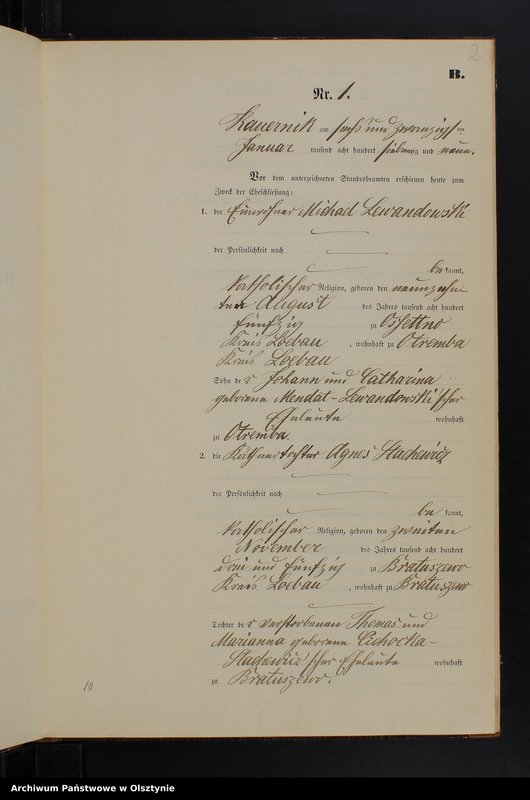 2
B.
Nr. 1.
Kauernik am sechs und zwanzigsten
Januar tausend acht hundert siebenzig und neun.
Vor dem unterzeichneten Standesbeamten erschienen heute zum
Zweck der Eheschließung:
1. der Einwohner Michael Lewandowski
der Persönlichkeit nach
be kannt,
katholischer Religion, geboren den neunzehn
ten August des Jahres tausend acht hundert
fünfzig zu Ossettno
Kreis Loebau, wohnhaft zu Otremba
Kreis Loebau
Sohn der Johann und Catharina
geborene Mendat-Lewandowski'scher
Eheleute wohnhaft
zu Otremba.
2. die Käthnertochter Agnes Stachewicz
der Persönlichkeit nach
be kannt,
katholischer Religion, geboren den zweiten
November des Jahres tausend acht hundert
drei und fünfzig zu Bratuszewo
Kreis Loebau, wohnhaft zu Bratuszewo
Tochter der verstorbenen Thomas und
Marianna geborene Cichocka-
Stachewicz'scher Eheleute wohnhaft
zu Bratuszewo.
10
Archiwum Państwowe w Olsztynie